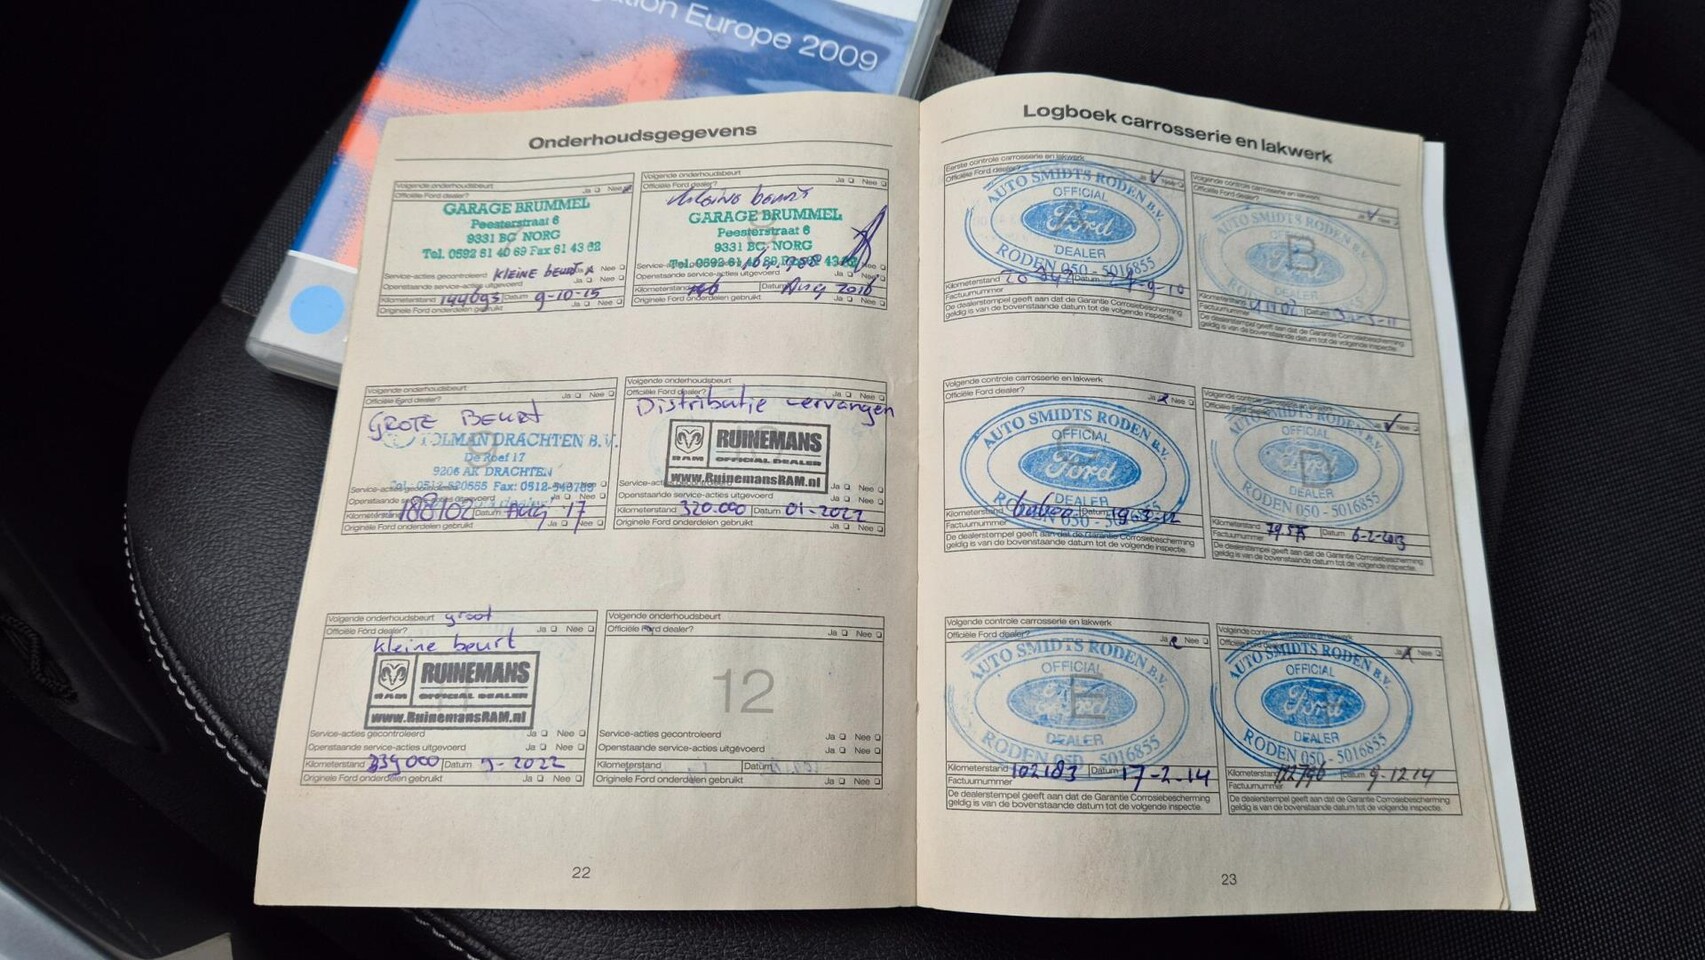 Europe 2009
Onderhoudsgegevens
Volgende onderhoudsbeurt
Officiële Ford dealer? Ja Nee
GARAGE BRUMMEL
Peesterstraat 6
9331 BG NORG
Tel. 0592 61 40 69 Fax 61 43 62
Service-acties gecontroleerd kleine beurt Ja Nee
Openstaande service-acties uitgevoerd Ja Nee
Kilometerstand 144693 Datum 9-10-15
Originele Ford onderdelen gebruikt Ja Nee
Volgende onderhoudsbeurt
Officiële Ford dealer? Ja Nee
kleine beurt
GARAGE BRUMMEL
Peesterstraat 6
9331 BG NORG
Openstaande service-acties uitgevoerd
Kilometerstand Datum Aug 2016
Originele Ford onderdelen gebruikt Ja Nee
Volgende onderhoudsbeurt
Officiële Ford dealer? Ja Nee
GROTE BEURT
DRACHTEN B.V.
De Roef 17
9206 AK DRACHTEN
Kilometerstand 188102 Datum Aug '17
Originele Ford onderdelen gebruikt Ja Nee
Volgende onderhoudsbeurt
Officiële Ford dealer? Ja Nee
Distributie vervangen
RAM RUINEMANS
OFFICIAL DEALER
www.RuinemansRAM.nl
Openstaande service-acties uitgevoerd Ja Nee
Kilometerstand 320.000 Datum 01-2022
Originele Ford onderdelen gebruikt Ja Nee
Volgende onderhoudsbeurt groot
Officiële Ford dealer? Ja Nee
kleine beurt
RAM RUINEMANS
OFFICIAL DEALER
www.RuinemansRAM.nl
Service-acties gecontroleerd Ja Nee
Openstaande service-acties uitgevoerd Ja Nee
Kilometerstand 339000 Datum 9-2022
Originele Ford onderdelen gebruikt Ja Nee
Volgende onderhoudsbeurt
Officiële Ford dealer? Ja Nee
12
Service-acties gecontroleerd Ja Nee
Openstaande service-acties uitgevoerd Ja Nee
Kilometerstand Datum
Originele Ford onderdelen gebruikt Ja Nee
22
Logboek carrosserie en lakwerk
Eerste controle carrosserie en lakwerk
Officiële Ford dealer? Ja Nee
AUTO SMIDTS RODEN B.V.
OFFICIAL
Ford
DEALER
RODEN 050 - 5016855
Kilometerstand Datum
Factuurnummer
De dealerstempel geeft aan dat de Garantie Corrosiebescherming
geldig is van de bovenstaande datum tot de volgende inspectie.
Volgende controle carrosserie en lakwerk
Officiële Ford dealer?
AUTO SMIDTS RODEN B.V.
B
DEALER
RODEN 050 - 5016855
Kilometerstand Datum
Factuurnummer
De dealerstempel geeft aan dat de Garantie Corrosiebescherming
geldig is van de bovenstaande datum tot de volgende inspectie.
Volgende controle carrosserie en lakwerk
Officiële Ford dealer? Ja Nee
AUTO SMIDTS RODEN B.V.
OFFICIAL
Ford
DEALER
RODEN 050
Kilometerstand Datum 19-3-12
Factuurnummer
De dealerstempel geeft aan dat de Garantie Corrosiebescherming
geldig is van de bovenstaande datum tot de volgende inspectie.
Volgende controle carrosserie en lakwerk
AUTO SMIDTS RODEN B.V.
OFFICIAL
D
Ford
DEALER
RODEN 050 - 5016855
Kilometerstand Datum 6-2-2013
Factuurnummer
De dealerstempel geeft aan dat de Garantie Corrosiebescherming
geldig is van de bovenstaande datum tot de volgende inspectie.
Volgende controle carrosserie en lakwerk
Officiële Ford dealer? Ja Nee
AUTO SMIDTS RODEN B.V.
OFFICIAL
E
Ford
DEALER
RODEN 050 - 5016855
Kilometerstand 102183 Datum 17-2-14
Factuurnummer
De dealerstempel geeft aan dat de Garantie Corrosiebescherming
geldig is van de bovenstaande datum tot de volgende inspectie.
Volgende controle carrosserie en lakwerk
AUTO SMIDTS RODEN B.V.
OFFICIAL
Ford
DEALER
RODEN 050 - 5016855
Kilometerstand Datum 9-12 14
Factuurnummer
De dealerstempel geeft aan dat de Garantie Corrosiebescherming
geldig is van de bovenstaande datum tot de volgende inspectie.
23